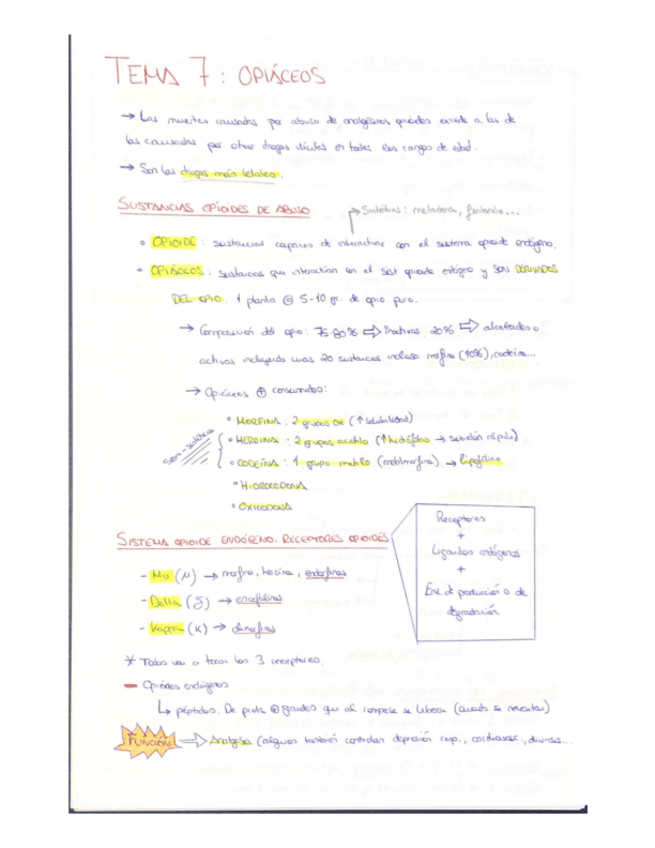 TEMA 7: OPIÁCEOS
→ Las muertes causadas por abuso de analgésicos opiodes excede a las de
las causadas por otras drogas ilícitas en todos los rangos de edad.
→ Son las drogas más letales.
SUSTANCIAS OPIOIDES DE ABUSO
→ Sintéticas: metadona, fentanilo...
• OPIOIDE: sustancias capaces de interactuar con el sistema opioide endógeno.
• OPIÁCEOS: sustancias que interactúan con el sist opioide endógeno y SON DERIVADOS
DEL OPIO. 1 planta @ 5-10 gr. de opio puro.
→ Composición del opio: 75-80% ⇒ inactivas. 20% ⇒ alcaloides o
activas incluyendo unas 20 sustancias incluso morfina (10%), codeína...
→ Opiáceos ⊕ consumidos:
• MORFINA: 2 grupos OH (↑ solubilidad)
• HEROINA: 2 grupos acetilo (↑ hidrófobo → subidón rápido)
• CODEÍNA: 1 grupo metilo (metilmorfina) → lipofílico
• HIDROCODONA
• OXICODONA
Semi-sintéticos
SISTEMA OPIOIDE ENDÓGENO. RECEPTORES OPIOIDES
Receptores
+
Ligandos endógenos
+
Enz. de producción o de
degradación.
- Mu (μ) → morfina, heroína, endorfinas
- Delta (δ) → encefalinas
- Kappa (K) → dinorfinas
* Todos van a tocar los 3 receptores.
- Opioides endógenos
↳ péptidos. De prots ⊕ grandes que al romperse se liberan (cuando se necesitan)
FUNCIÓN ⇒ Analgesia (algunos también controlan depresión resp., cardiovasc., diuresis...